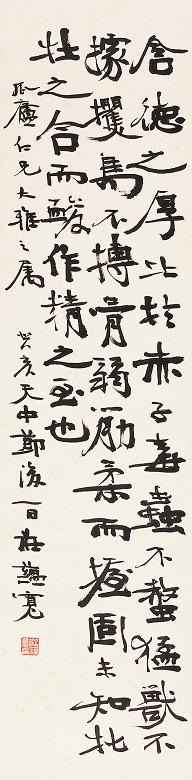 含德之厚比於赤子毒蟲不螫猛獸不
據攫鳥不搏骨弱筋柔而握固未知牝
牡之合而朘作精之至也
孤廬仁兄大雅之属 癸亥天中節後一日莊蘊寬